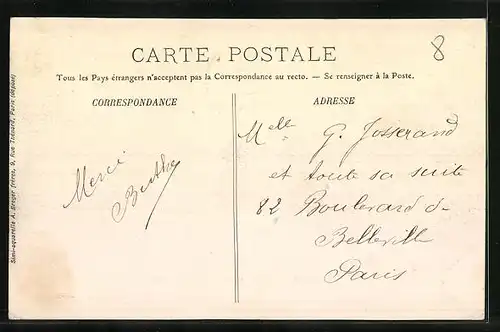 8
CARTE POSTALE
Tous les Pays étrangers n'acceptent pas la Correspondance au recto. — Se renseigner à la Poste.
CORRESPONDANCE
Merci
Berthe
ADRESSE
Melle G. Josserand
et toute sa suite
82 Boulevard de
Belleville
Paris
Simi-aquarelle A. Breger frères, 9, Rue Thénard, Paris (déposé)